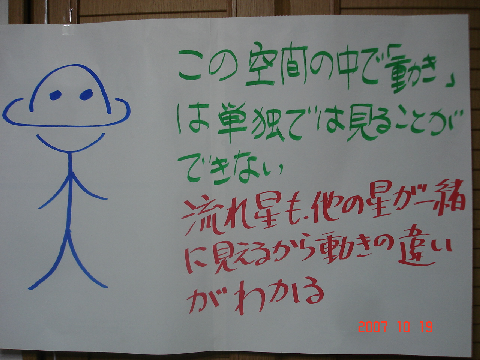 この空間の中で「動き」
は単独では見ることが
できない
流れ星も、他の星が一緒
に見えるから動きの違い
がわかる
2007 10 19